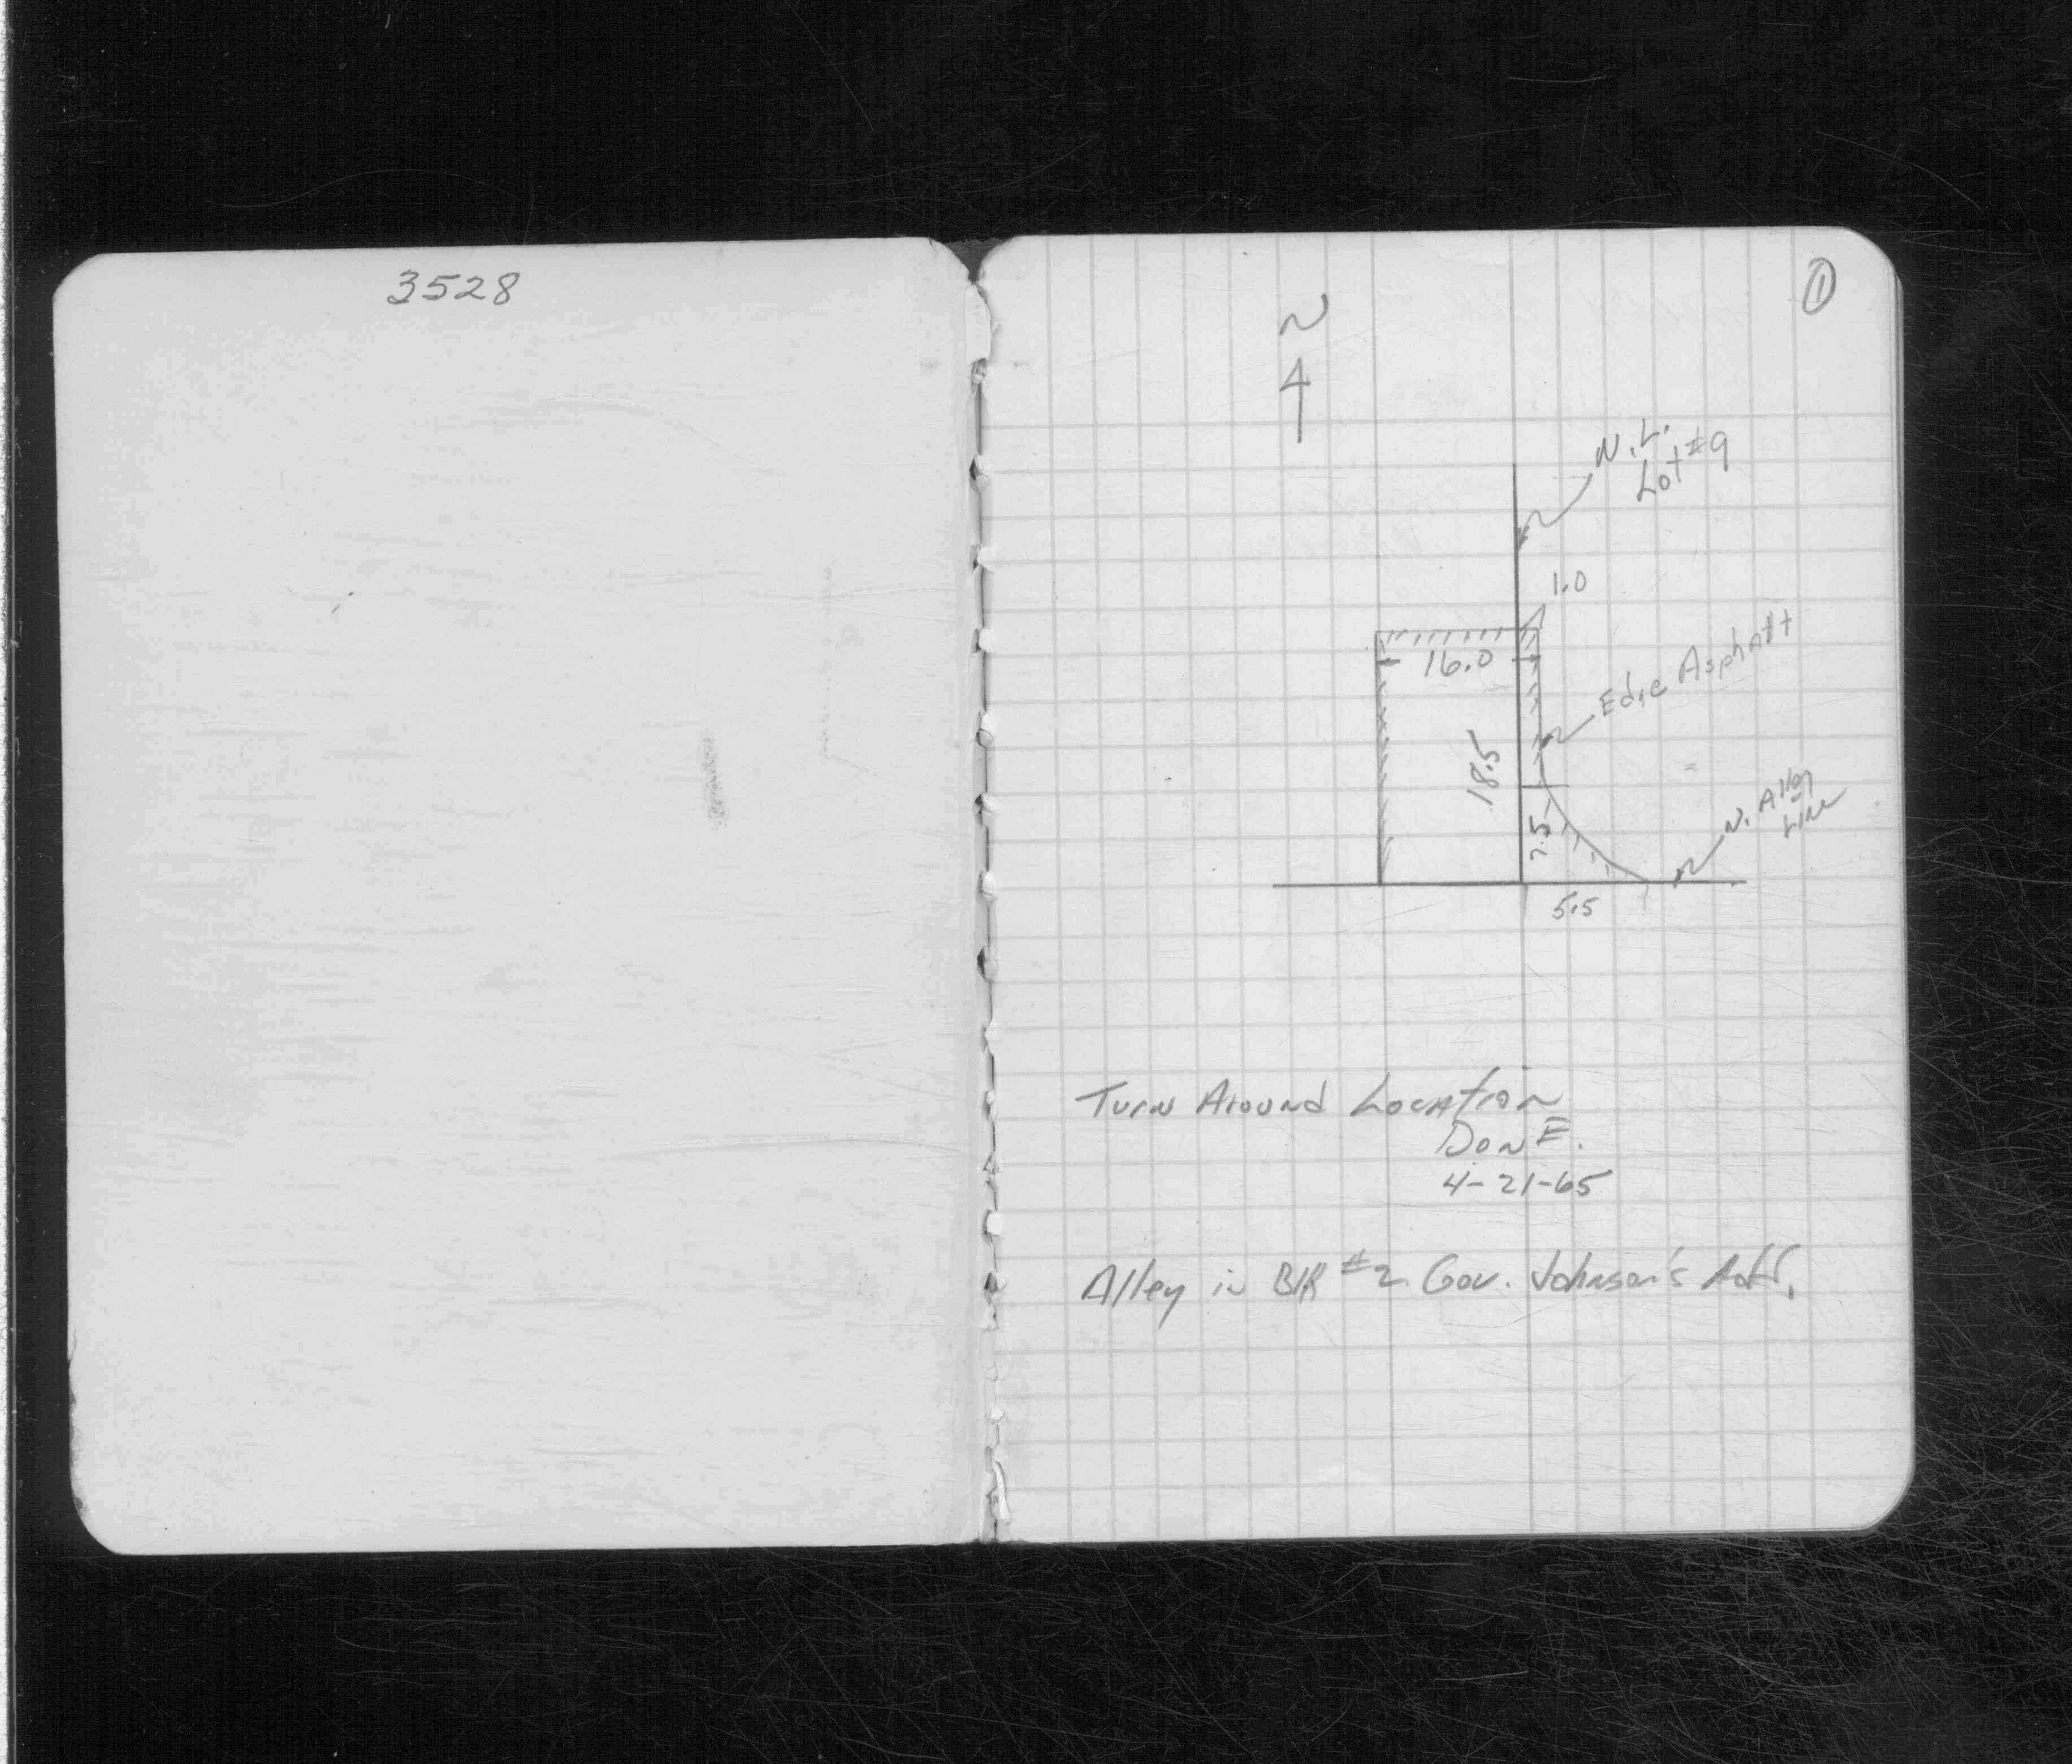 3528
1
N
N.L.
Lot #9
1.0
16.0
Edge Asphalt
18.5
7.5
N. Alley
Line
5.5
Turn Around Location
Done.
4-21-65
Alley in Blk #2 Gov. Johnson's Add.